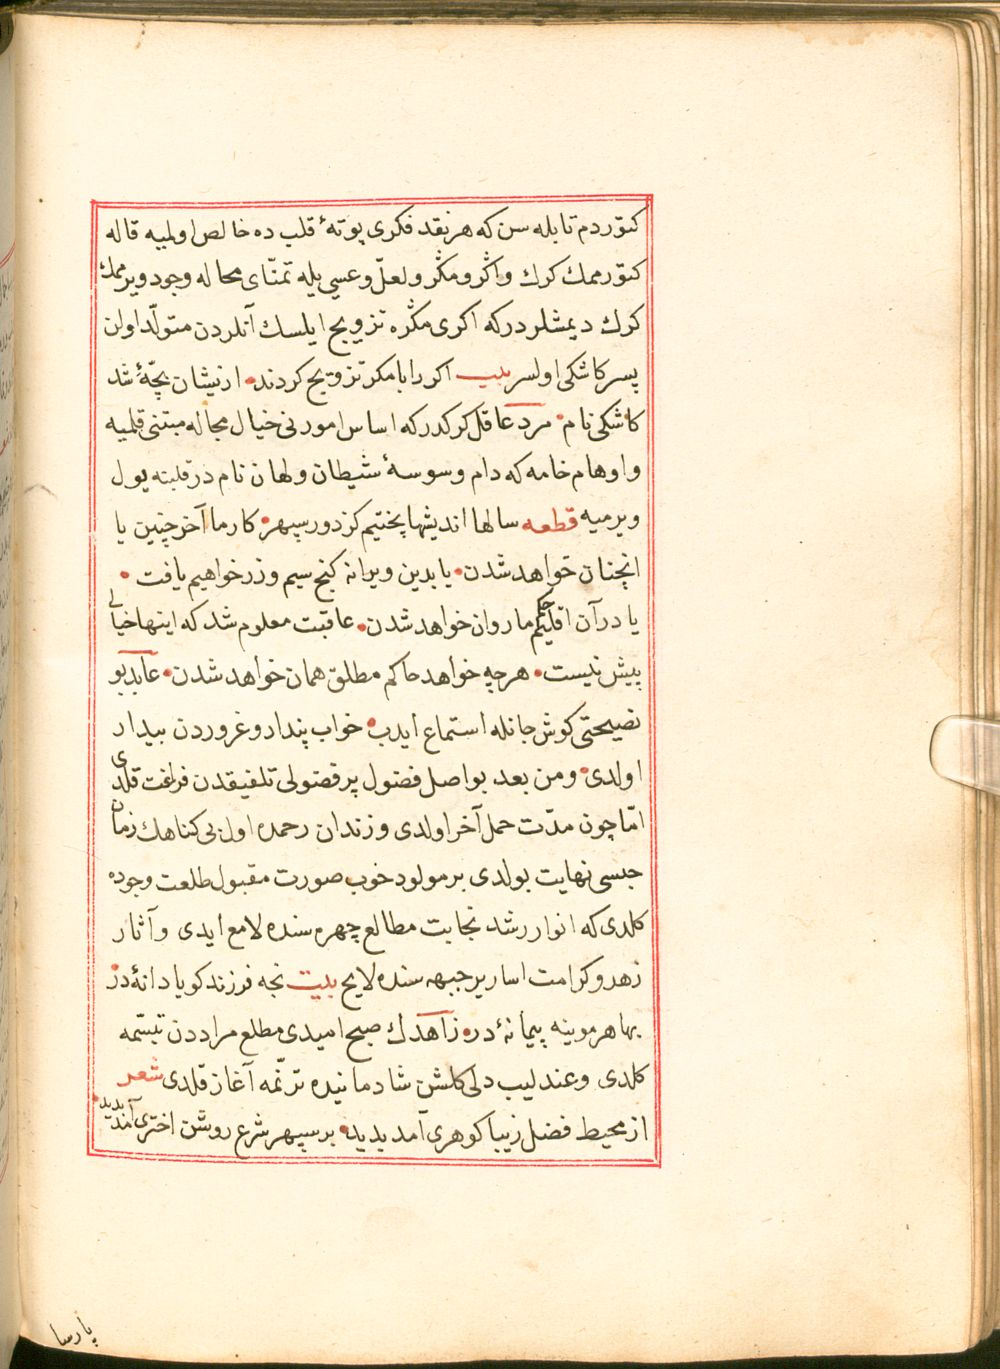 كتوردم تا بله سن كه هر نقد فكرى پوتهٔ قلب ده خالص اولميه قاله
كتورممك كرك واكر ومكر ولعلّ وعسى يله تمنّاى محاله وجود ويرممك
كرك ديمشلردركه اكرى مكره تزويج ايلسك آنلردن متولّد اولن
پسر كاشكى اولسر بيت اكر را با مكر تزويج كردند • ازيشان بچّهٔ شد
كاشكى نام • مرد عاقل كركدركه اساس امورنى خيال محاله مبتنى قلميه
واوهام خامه كه دام وسوسهٔ شيطان ولهان نام در قلبنه يول
ويرميه قطعه سالها انديشها پختيم كز دور سپهر • كار ما آخر چنين يا
انچنان خواهد شدن • يا بدين ويرانه كنج سيم وزر خواهيم يافت •
يا در آن اقليم حكم ما روان خواهد شدن • عاقبت معلوم شد كه اينها خيالى
بيش نيست • هرچه خواهد حاكم مطلق همان خواهد شدن • عابد بو
نصيحتى كوش جانله استماع ايدب • خواب پندار وغروردن بيدار
اولدى • ومن بعد بو اصل فضول پر فضولى تلفيقدن فراغت قلدى
امّا چون مدّت حمل آخر اولدى وزندان رحمده اول بى كناهك زمان
حبسى نهايت بولدى بر مولود خوب صورت مقبول طلعت وجوده
كلدى كه انوار رشد نجابت مطالع چهره سنده لامع ايدى وآثار
زهد وكرامت اسارير جبهه سنده لايح بيت نجه فرزند كويا دانهٔ در
بها هر موينه پيمانهٔ در • زاهدك صبح اميدى مطلع مراددن تبسّمه
كلدى وعندليب دلى كلشن شادمانيده ترنّمه آغاز قلدى شعر
از محيط فضل زيبا كوهرى آمد پديد • بر سپهر شرع روشن اخترى آمد پديد •
پارسا